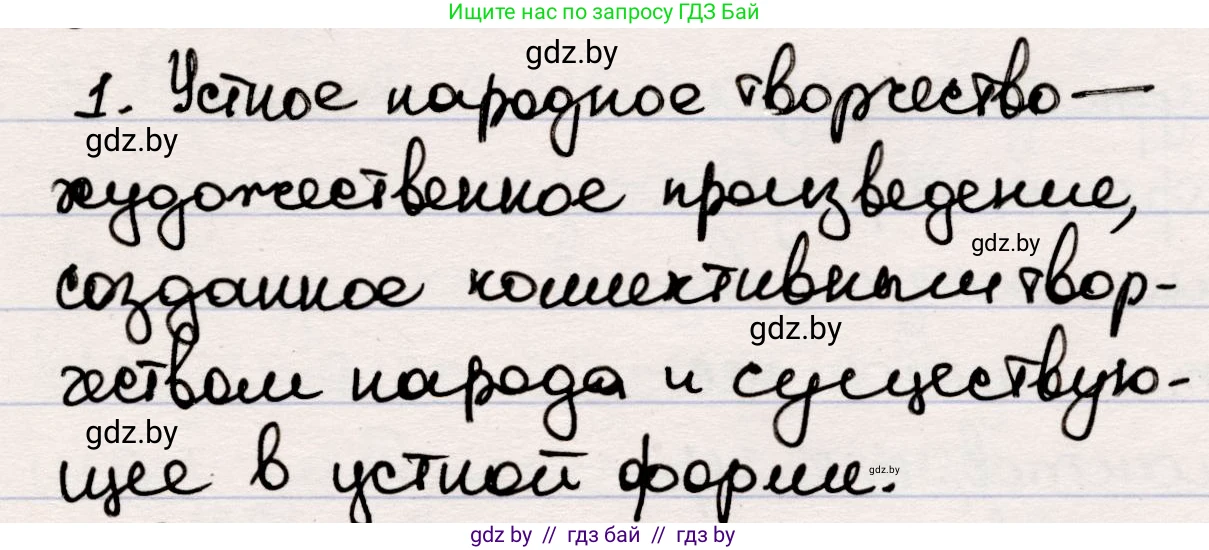 Ищите нас по запросу ГДЗ Бай
gdz.by
1. Устное народное творчество —
gdz.by
художественное произведение,
gdz.by
созданное коллективным твор-
gdz.by
чеством народа и существую-
gdz.by
щее в устной форме.
gdz.by
gdz by // гдз бай // gdz by